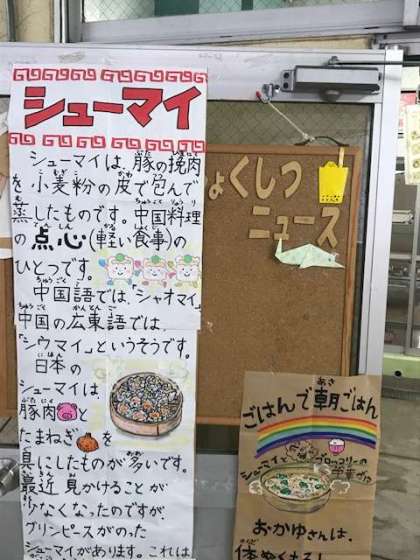 シューマイ
シューマイは、豚の挽肉
を小麦粉の皮で包んで
蒸したものです。中国料理
の点心(軽い食事)の
ひとつです。
中国語では、シャオマイ、
中国の広東語では、
「シウマイ」というそうです。
日本の
シューマイは、
豚肉と
たまねぎを
具にしたものが多いです。
最近見かけることが
少なくなったのですが、
グリンピースがのった
シューマイがあります。これは、
ょくしつ
ニュース
ごはんで朝ごはん
おかゆさんは、